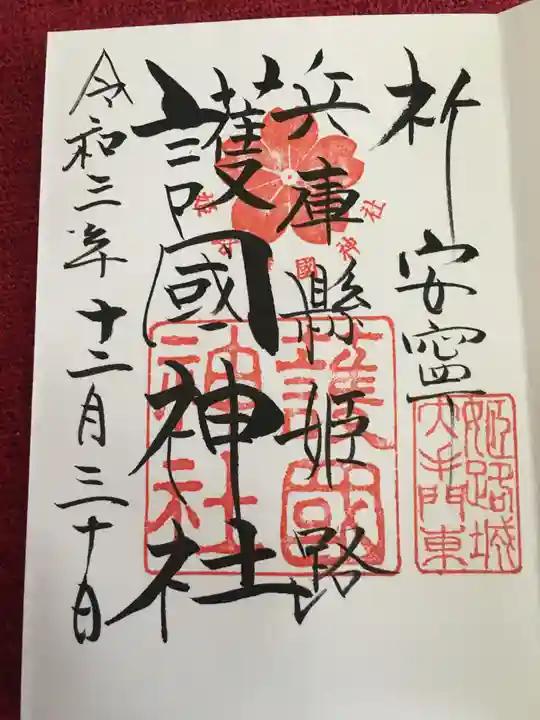 祈安寧
姫路城
大手門東
兵庫縣姫路
護國神社
姫路護國神社
護國
神社
令和三年十二月三十日